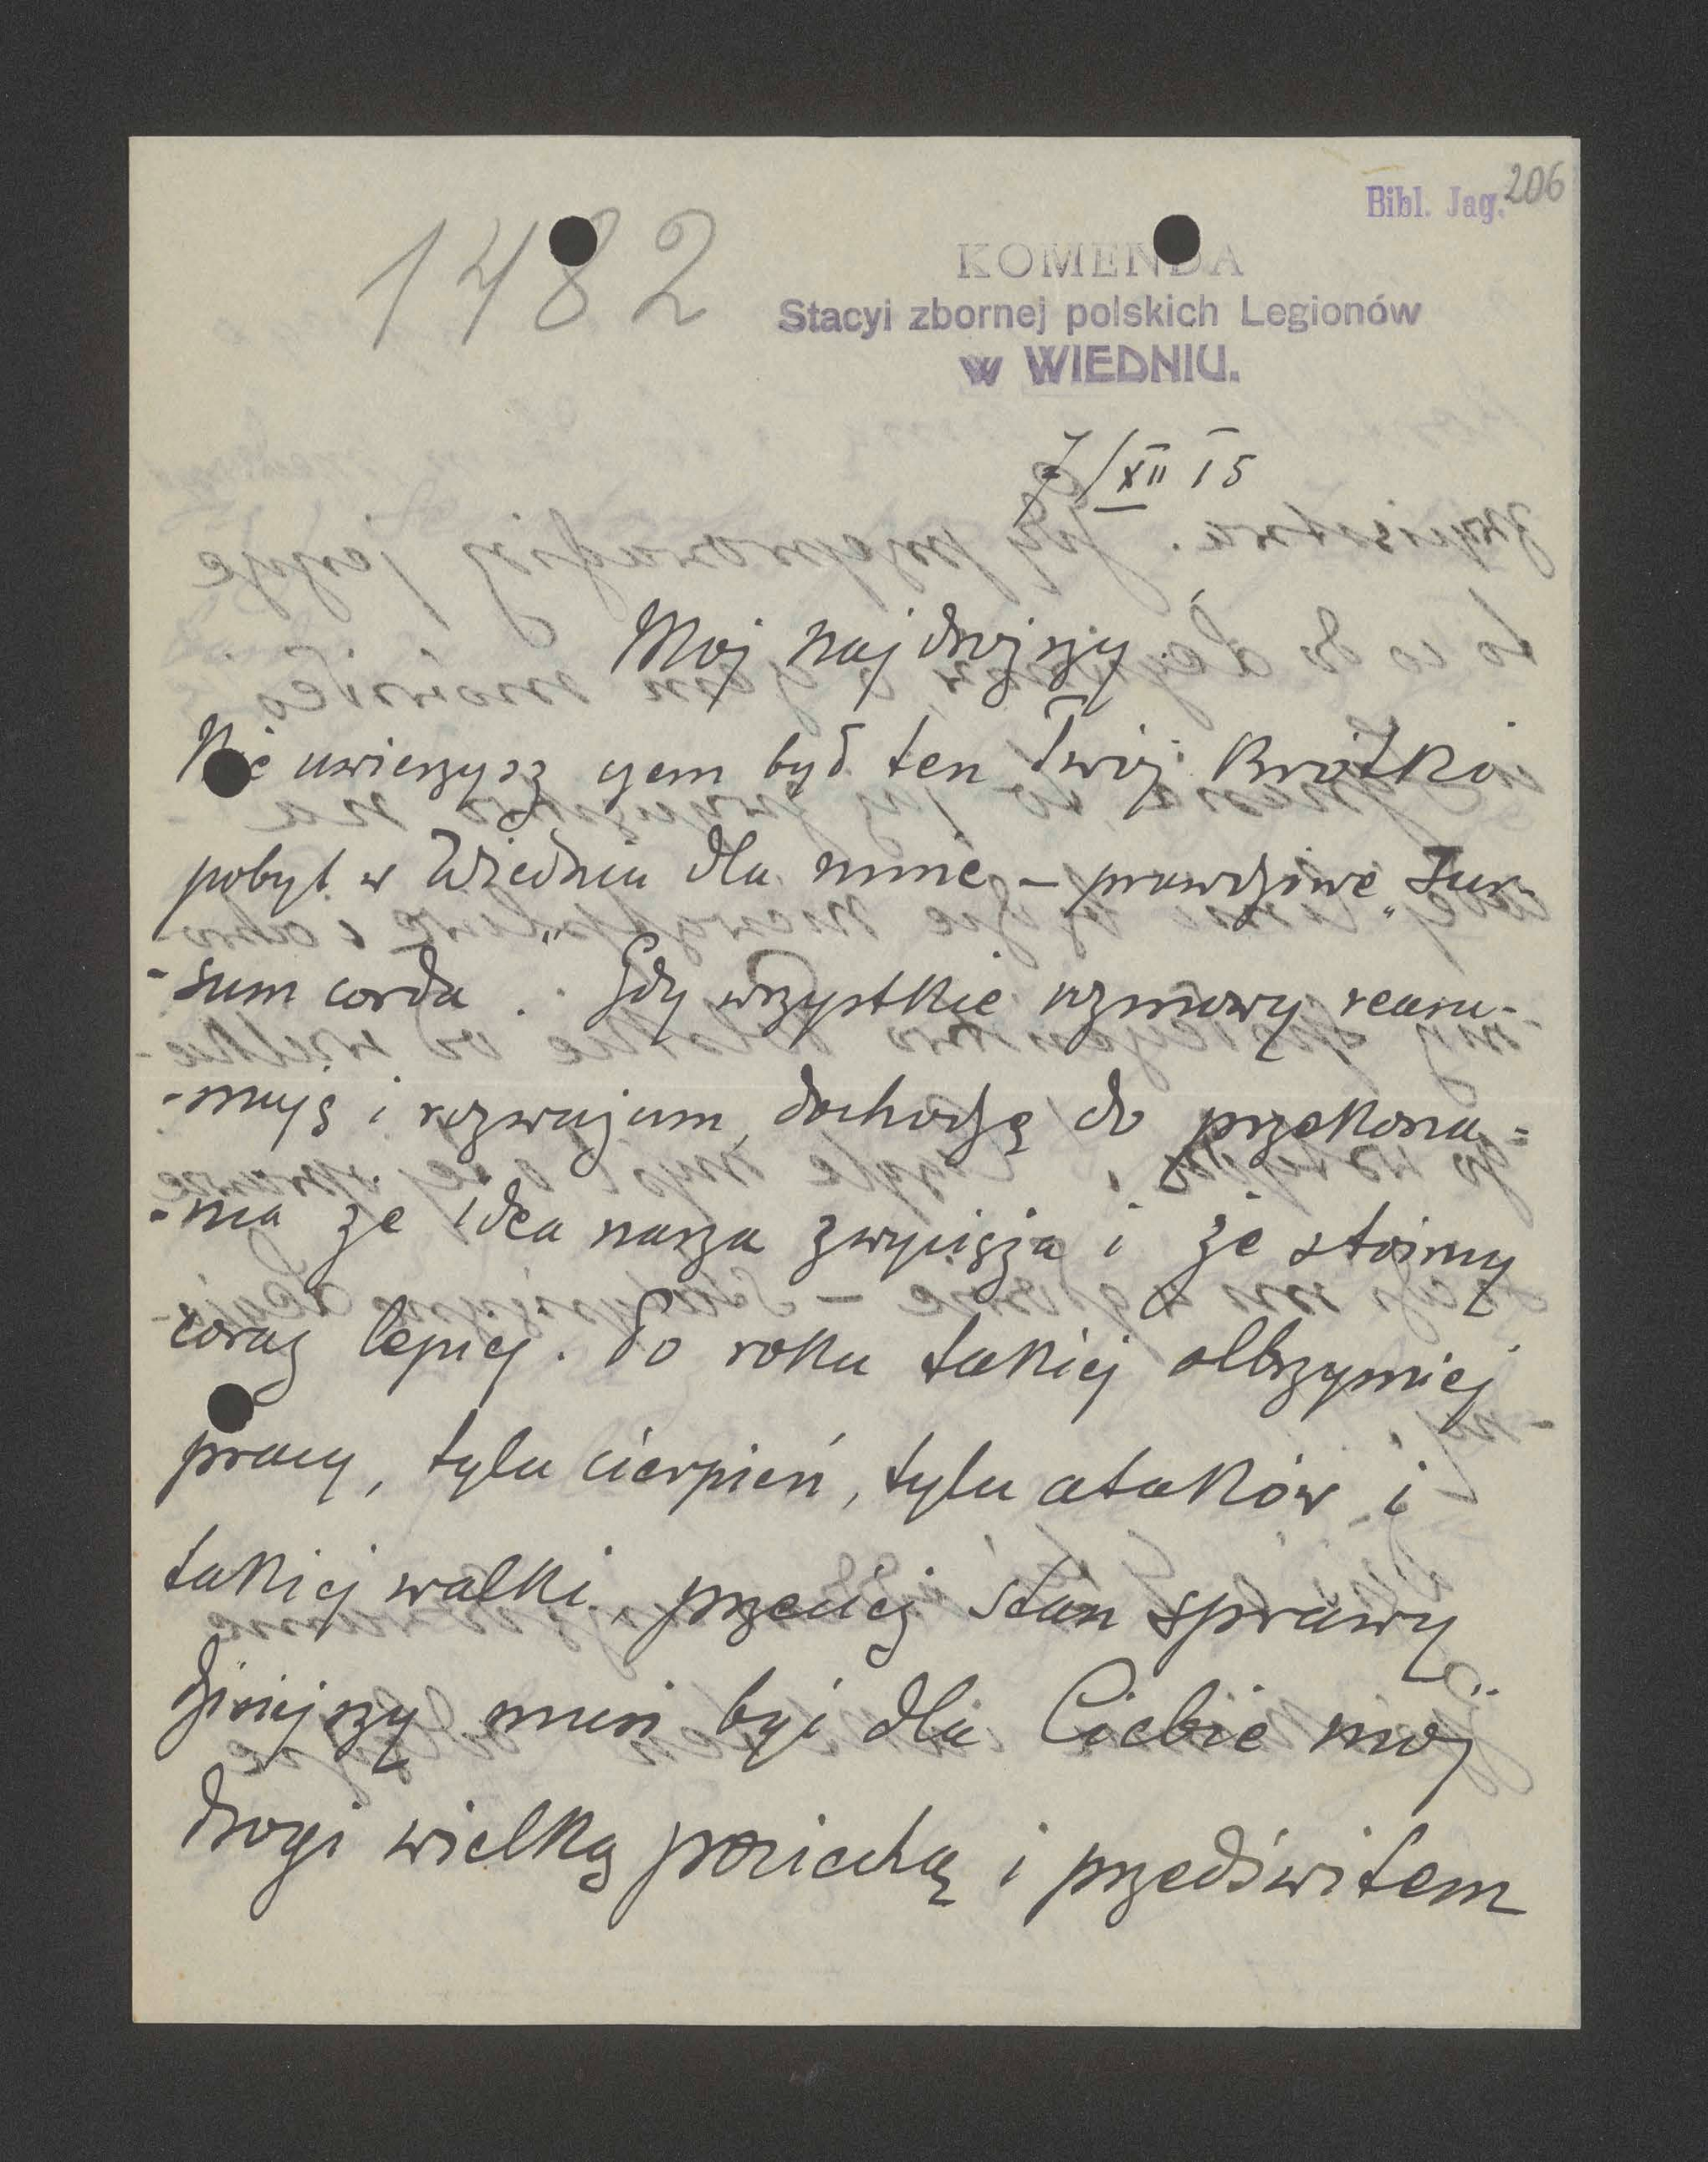 Bibl. Jag. 206
1482
KOMENDA
Stacyi zbornej polskich Legionów
w WIEDNIU.
7/XII 15
Mój najdroższy.
Nie uwierzysz czem był ten Twój krótki
pobyt w Wiedniu dla mnie – prawdziwe „Sur-
-sum corda". Gdy wszystkie rozmowy reasu-
-muję i rozważam, dochodzę do przekona-
-nia że idea nasza zwycięża i że stoimy
coraz lepiej. Po roku takiej olbrzymiej
pracy, tylu cierpień, tylu ataków i
takiej walki, przecież stan sprawy
dzisiejszy musi być dla Ciebie mój
drogi wielką pociechą i przedświtem